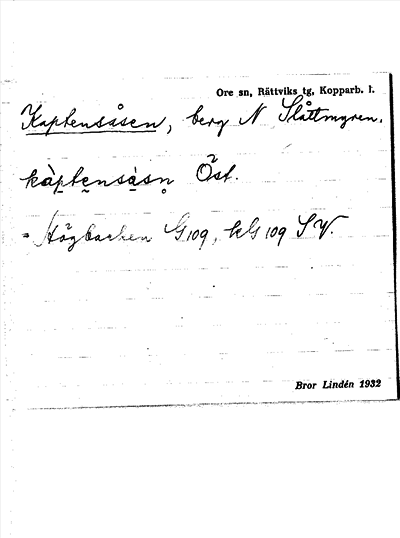 Ore sn, Rättviks tg, Kopparb. l.
Kaptensåsen, berg N Slåttmyren.
kàptensåsn Öst.
= Högbacken G109, hG 109 SV.
Bror Lindén 1932